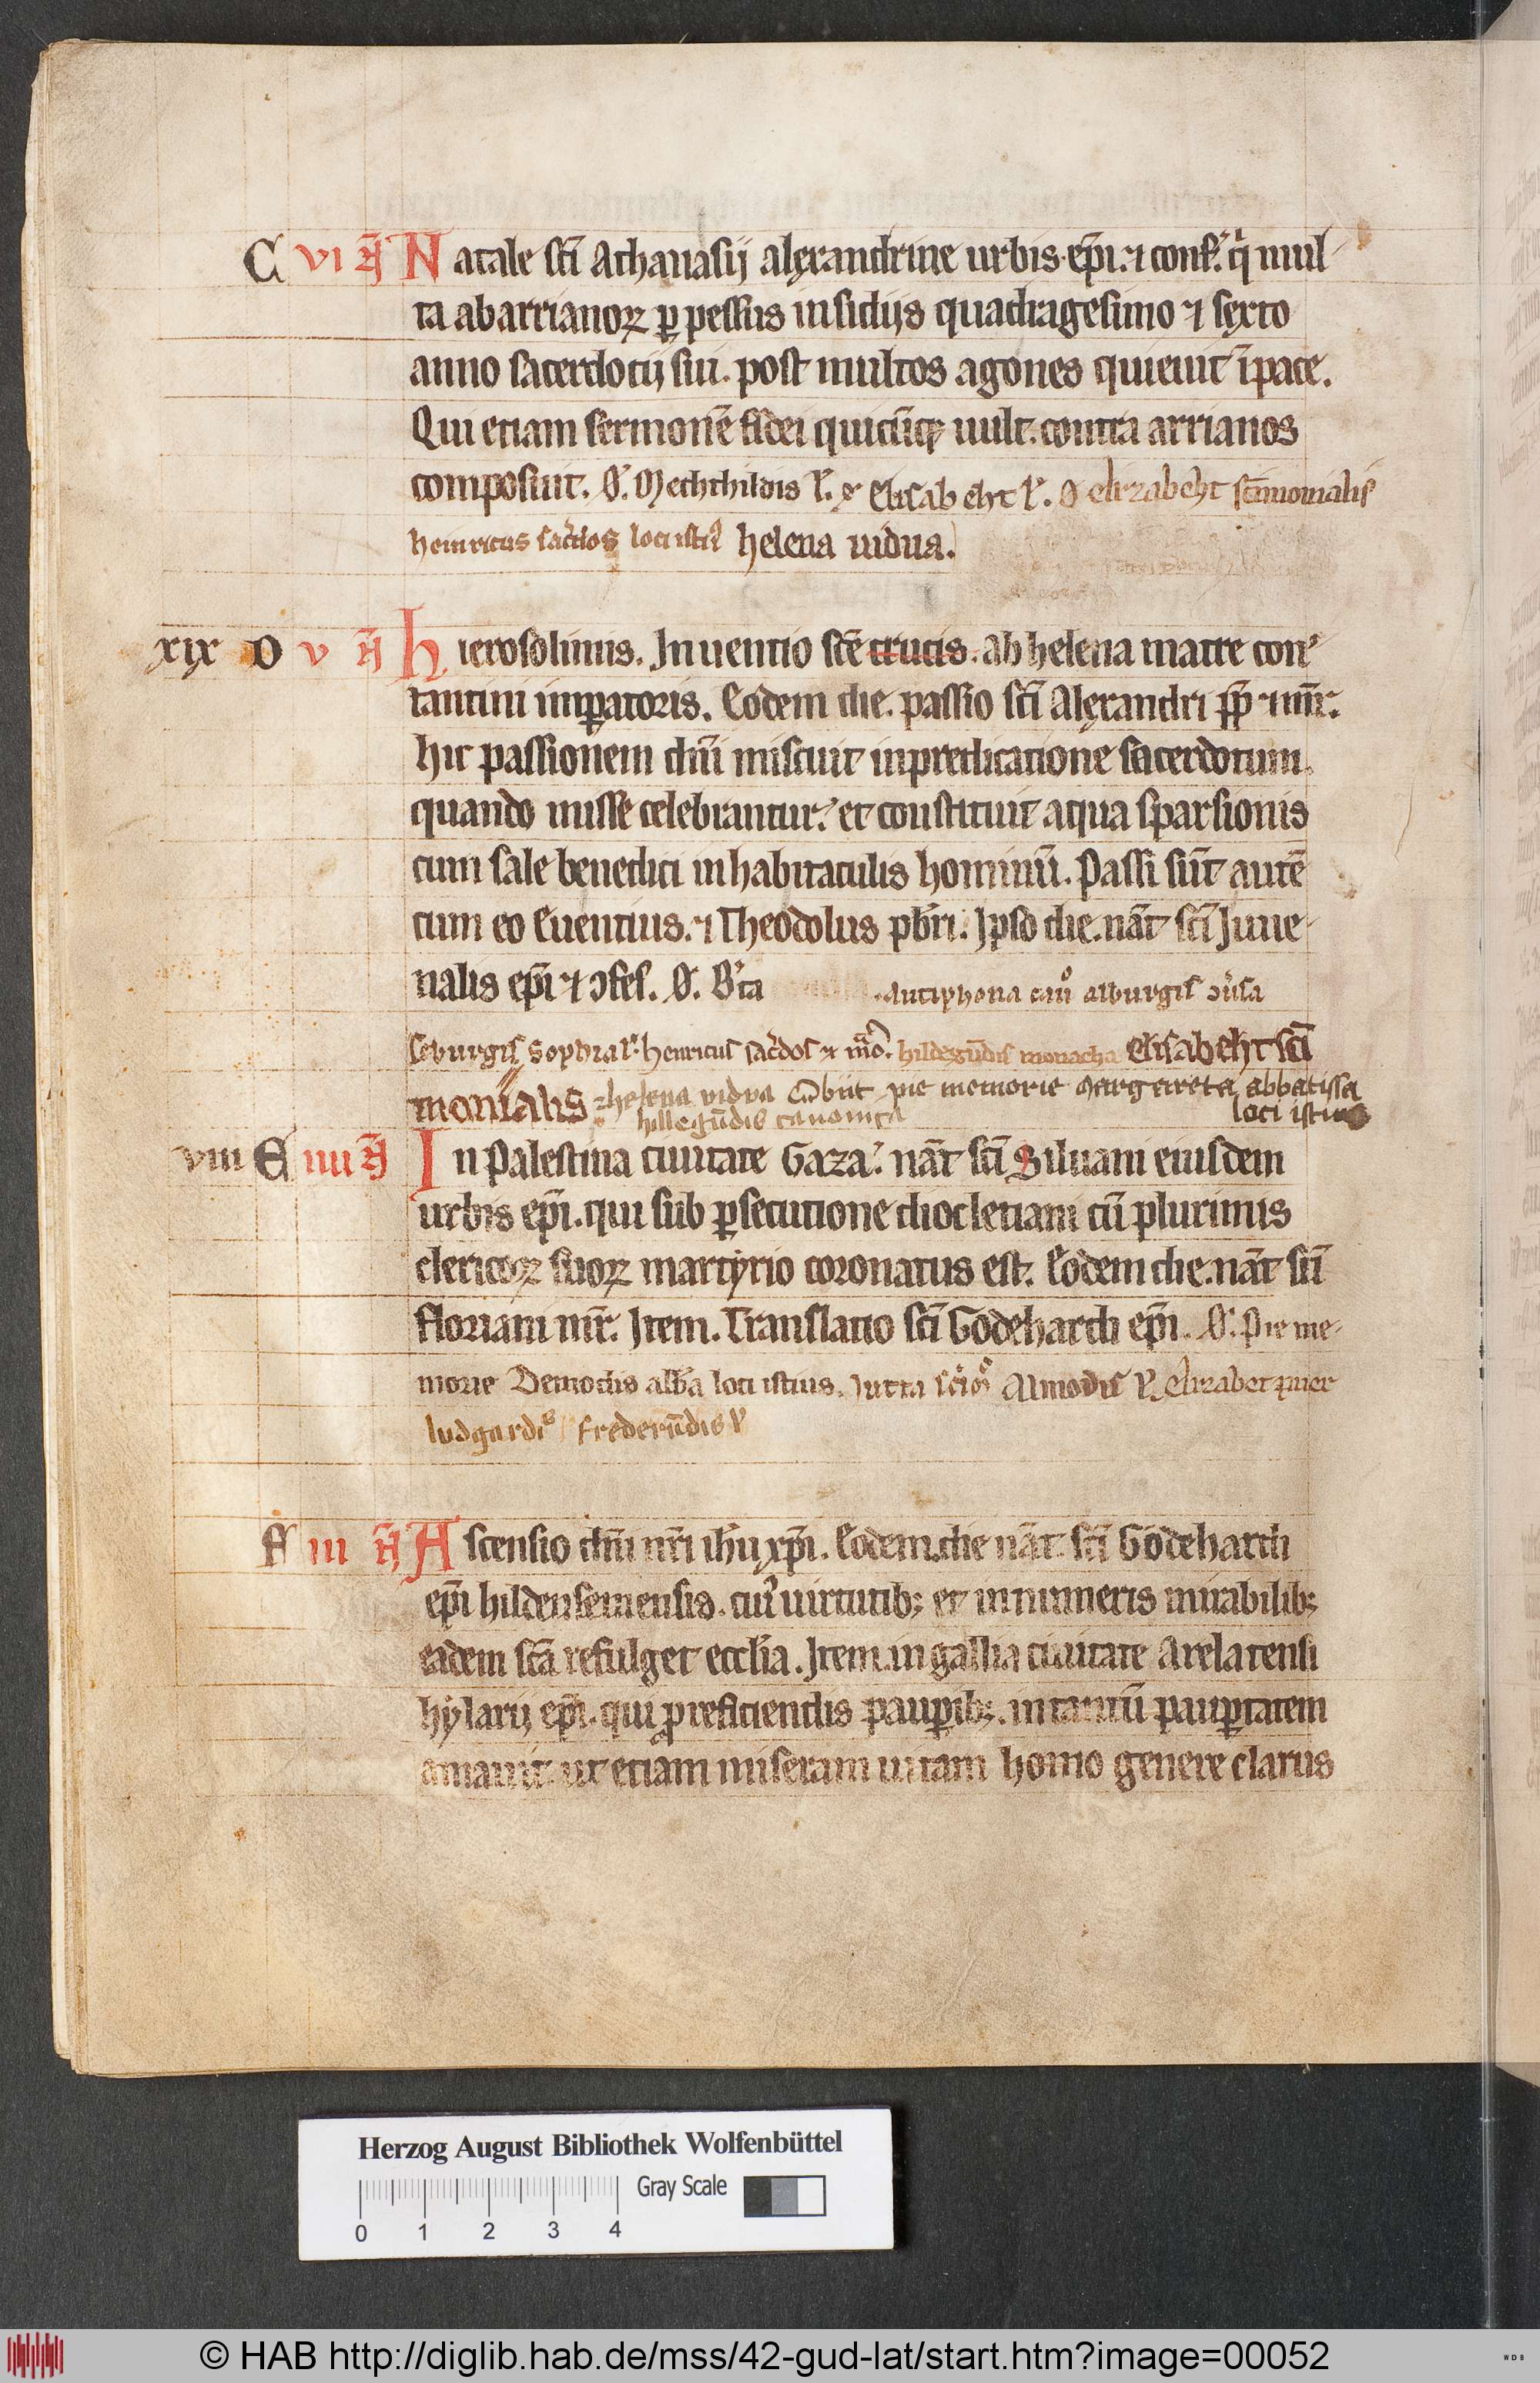 C VI N̄ Natale sc̄i Athanasij alęxandrine urbis ep̄i. ⁊ conf. q̇ mul-
ta ab arrianoꝝ ꝑpessus insidijs quadragesimo ⁊ sęxto
anno sacerdotij sui. post multos agones quieuit ī pace.
Qui etiam sermonē fidei quicūqꝫ uult. contra arrianos
composuit. O. Mechthildis l'. ⁊ Elisabeht l'. O elizabeht sc̄imonialis
heinricus sac̄dos loci istiꝰ helena uidua.
XIX D V N̄ hierosolimis. Inuentio sc̄e crucis. ab helena matre con-
stantini imꝑatoris. Eodem die. passio sc̄i Alęxandri pp̄ ⁊ mr̄.
hic passionem dn̄i miscuit in predicatione sacerdotum.
quando misse celebrantur. et constituit aqua sparsionis
cum sale benedici in habitaculis hominū. Passi sūt autē
cum eo Euentius. ⁊ Theodolus pb̄ri. Ipso die. nāt sc̄i Juue-
nalis ep̄i ⁊ ɔfes. O. B'ta antiphona can̄ alburgis ɔ̄uersa
Sophia l'. henricus sac̄dos ⁊ mō. hildegūdis monacha Elisabeht sc̄i
monialis helena vidva O᷑biit pie memorie Margareta abbatissa
hillegūdis canonica loci istius
VIII E IIII N̄ In Palestina ciuitate Gaza. nāt sc̄i Siluani eiusdem
urbis ep̄i. qui sub ꝑsecutione diocletiani cū plurimis
clericoꝝ suoꝝ martyrio coronatus est. Eodem die. nāt sc̄i
floriani mr̄. Item. Translatio sc̄i Godehardi ep̄i. O. Pie me-
morie Demodis abb̄a loci istius. Jutta Almodis l'. Elizabet
ludgardis frederūdis l'
F III N̄ Ascensio dn̄i nr̄i ih̄u xp̄i. Eodem die nāt sc̄i Godehardi
ep̄i hildensemensis. cuiꝰ uirtutibꝫ et innumeris mirabilibꝫ
eadem sc̄a refulget eccl̄ia. Item. in gallia ciuitate Arelatensi
hylarij ep̄i. qui ꝓ reficiendis pauꝑibꝫ. in tantū pauꝑtatem
amauit. ut etiam miseram uitam homo genere clarus
Herzog August Bibliothek Wolfenbüttel
Gray Scale
0 1 2 3 4
© HAB http://diglib.hab.de/mss/42-gud-lat/start.htm?image=00052
WDB